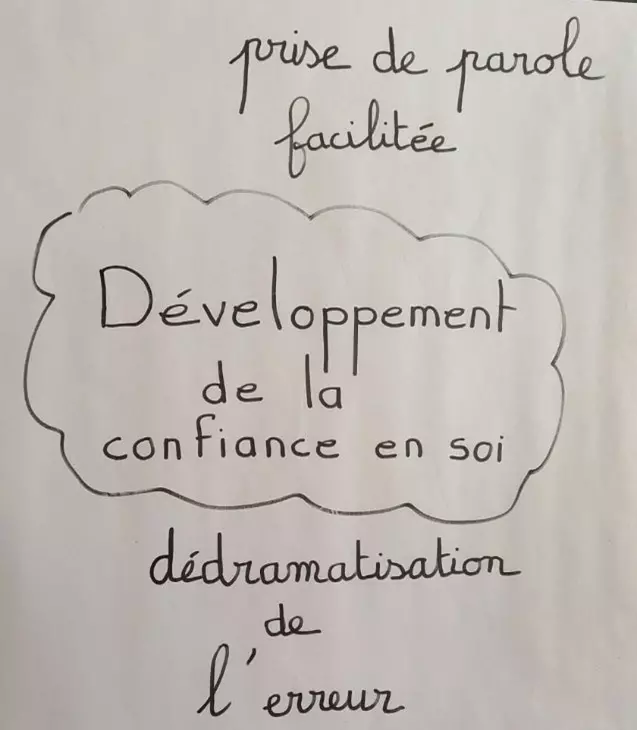 prise de parole
facilitée
Développement
de la
confiance en soi
dédramatisation
de
l'erreur